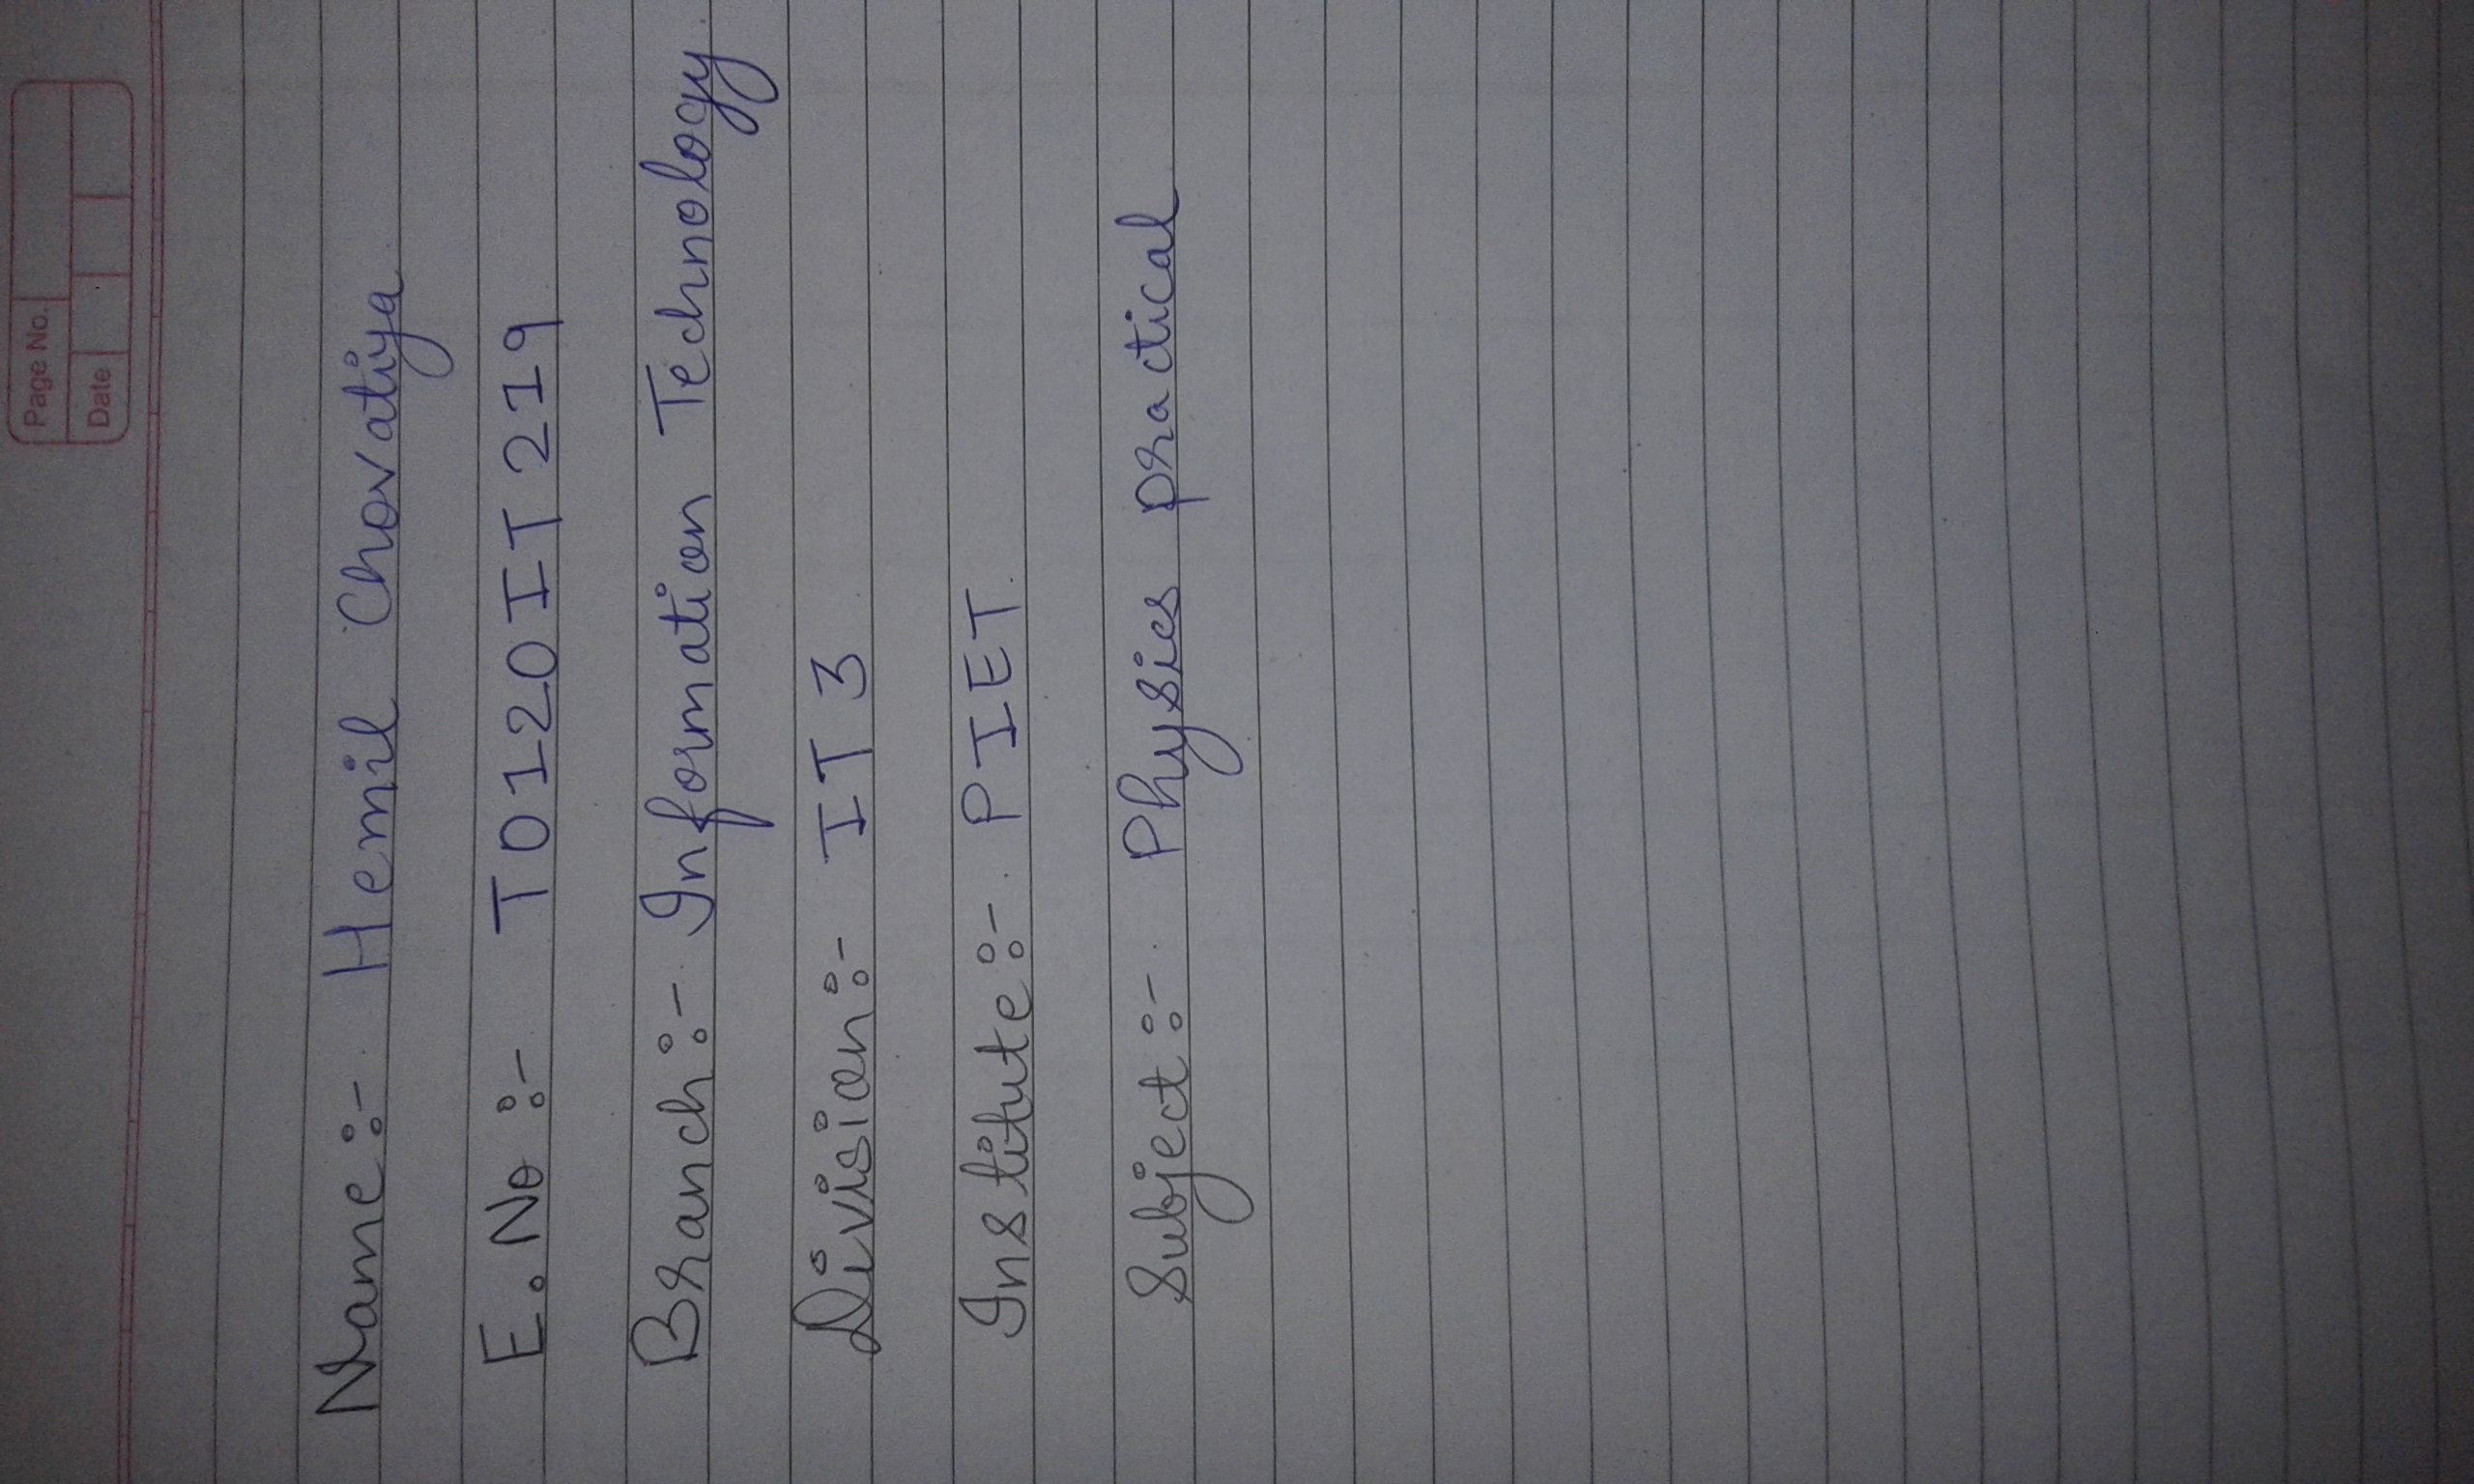 Page No.
Date
Name:- Hemil Chovatiya
E. No :- T0120IT219
Branch:- Information Technology
Division:- IT3
Institute:- PIET.
Subject:- Physics practical